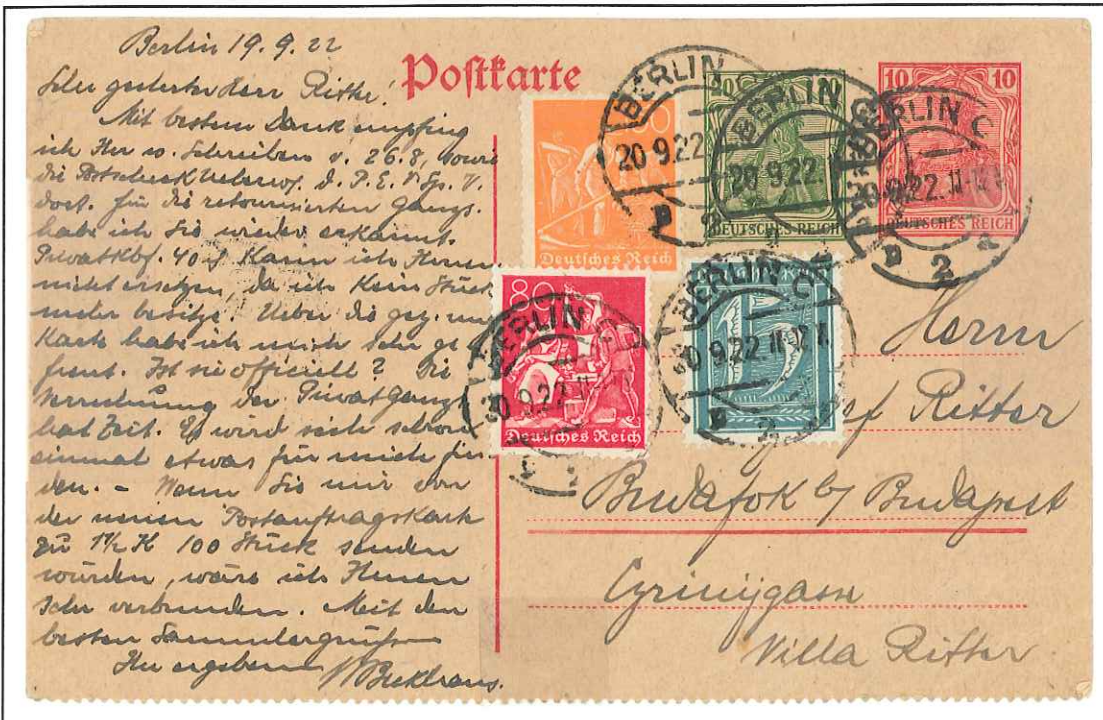 Berlin 19. 9. 22
Postkarte
Sehr geehrter Herr Ritter!
Mit bestem Dank empfing
ich Ihr w. Schreiben v. 26.8, sowie
die Postscheck
dort. für die retournierten Ganzs.
habe ich Sie wieder erkannt.
Privatkbf. 40 kann ich Ihnen
nicht ersetzen, da ich kein Stück
mehr besitze. Ueber die gez.
Karte habe ich mich sehr ge
freut. Ist sie officiell? Die
Verrechnung der Privatganzs.
hat Zeit. Es wird sich schon
einmal etwas für mich fin
den. - Wenn Sie mir von
der neuen Postauftragskarte
zu 1½ K 100 Stück senden
würden, wäre ich Ihnen
sehr verbunden. Mit den
besten Sammlergrüßen
Ihr ergebener
Deutsches Reich
BERLIN
20 9.22
DEUTSCHES REICH
BERLIN
20 9.22
10 10
DEUTSCHES REICH
BERLIN C
20 9.22. 11-12
2
80
Deutsches Reich
BERLIN C
20 9.22 11
BERLIN C
20 9.22 11
2
Herrn
Ritter
Budafok b/ Budapest
Villa Ritter